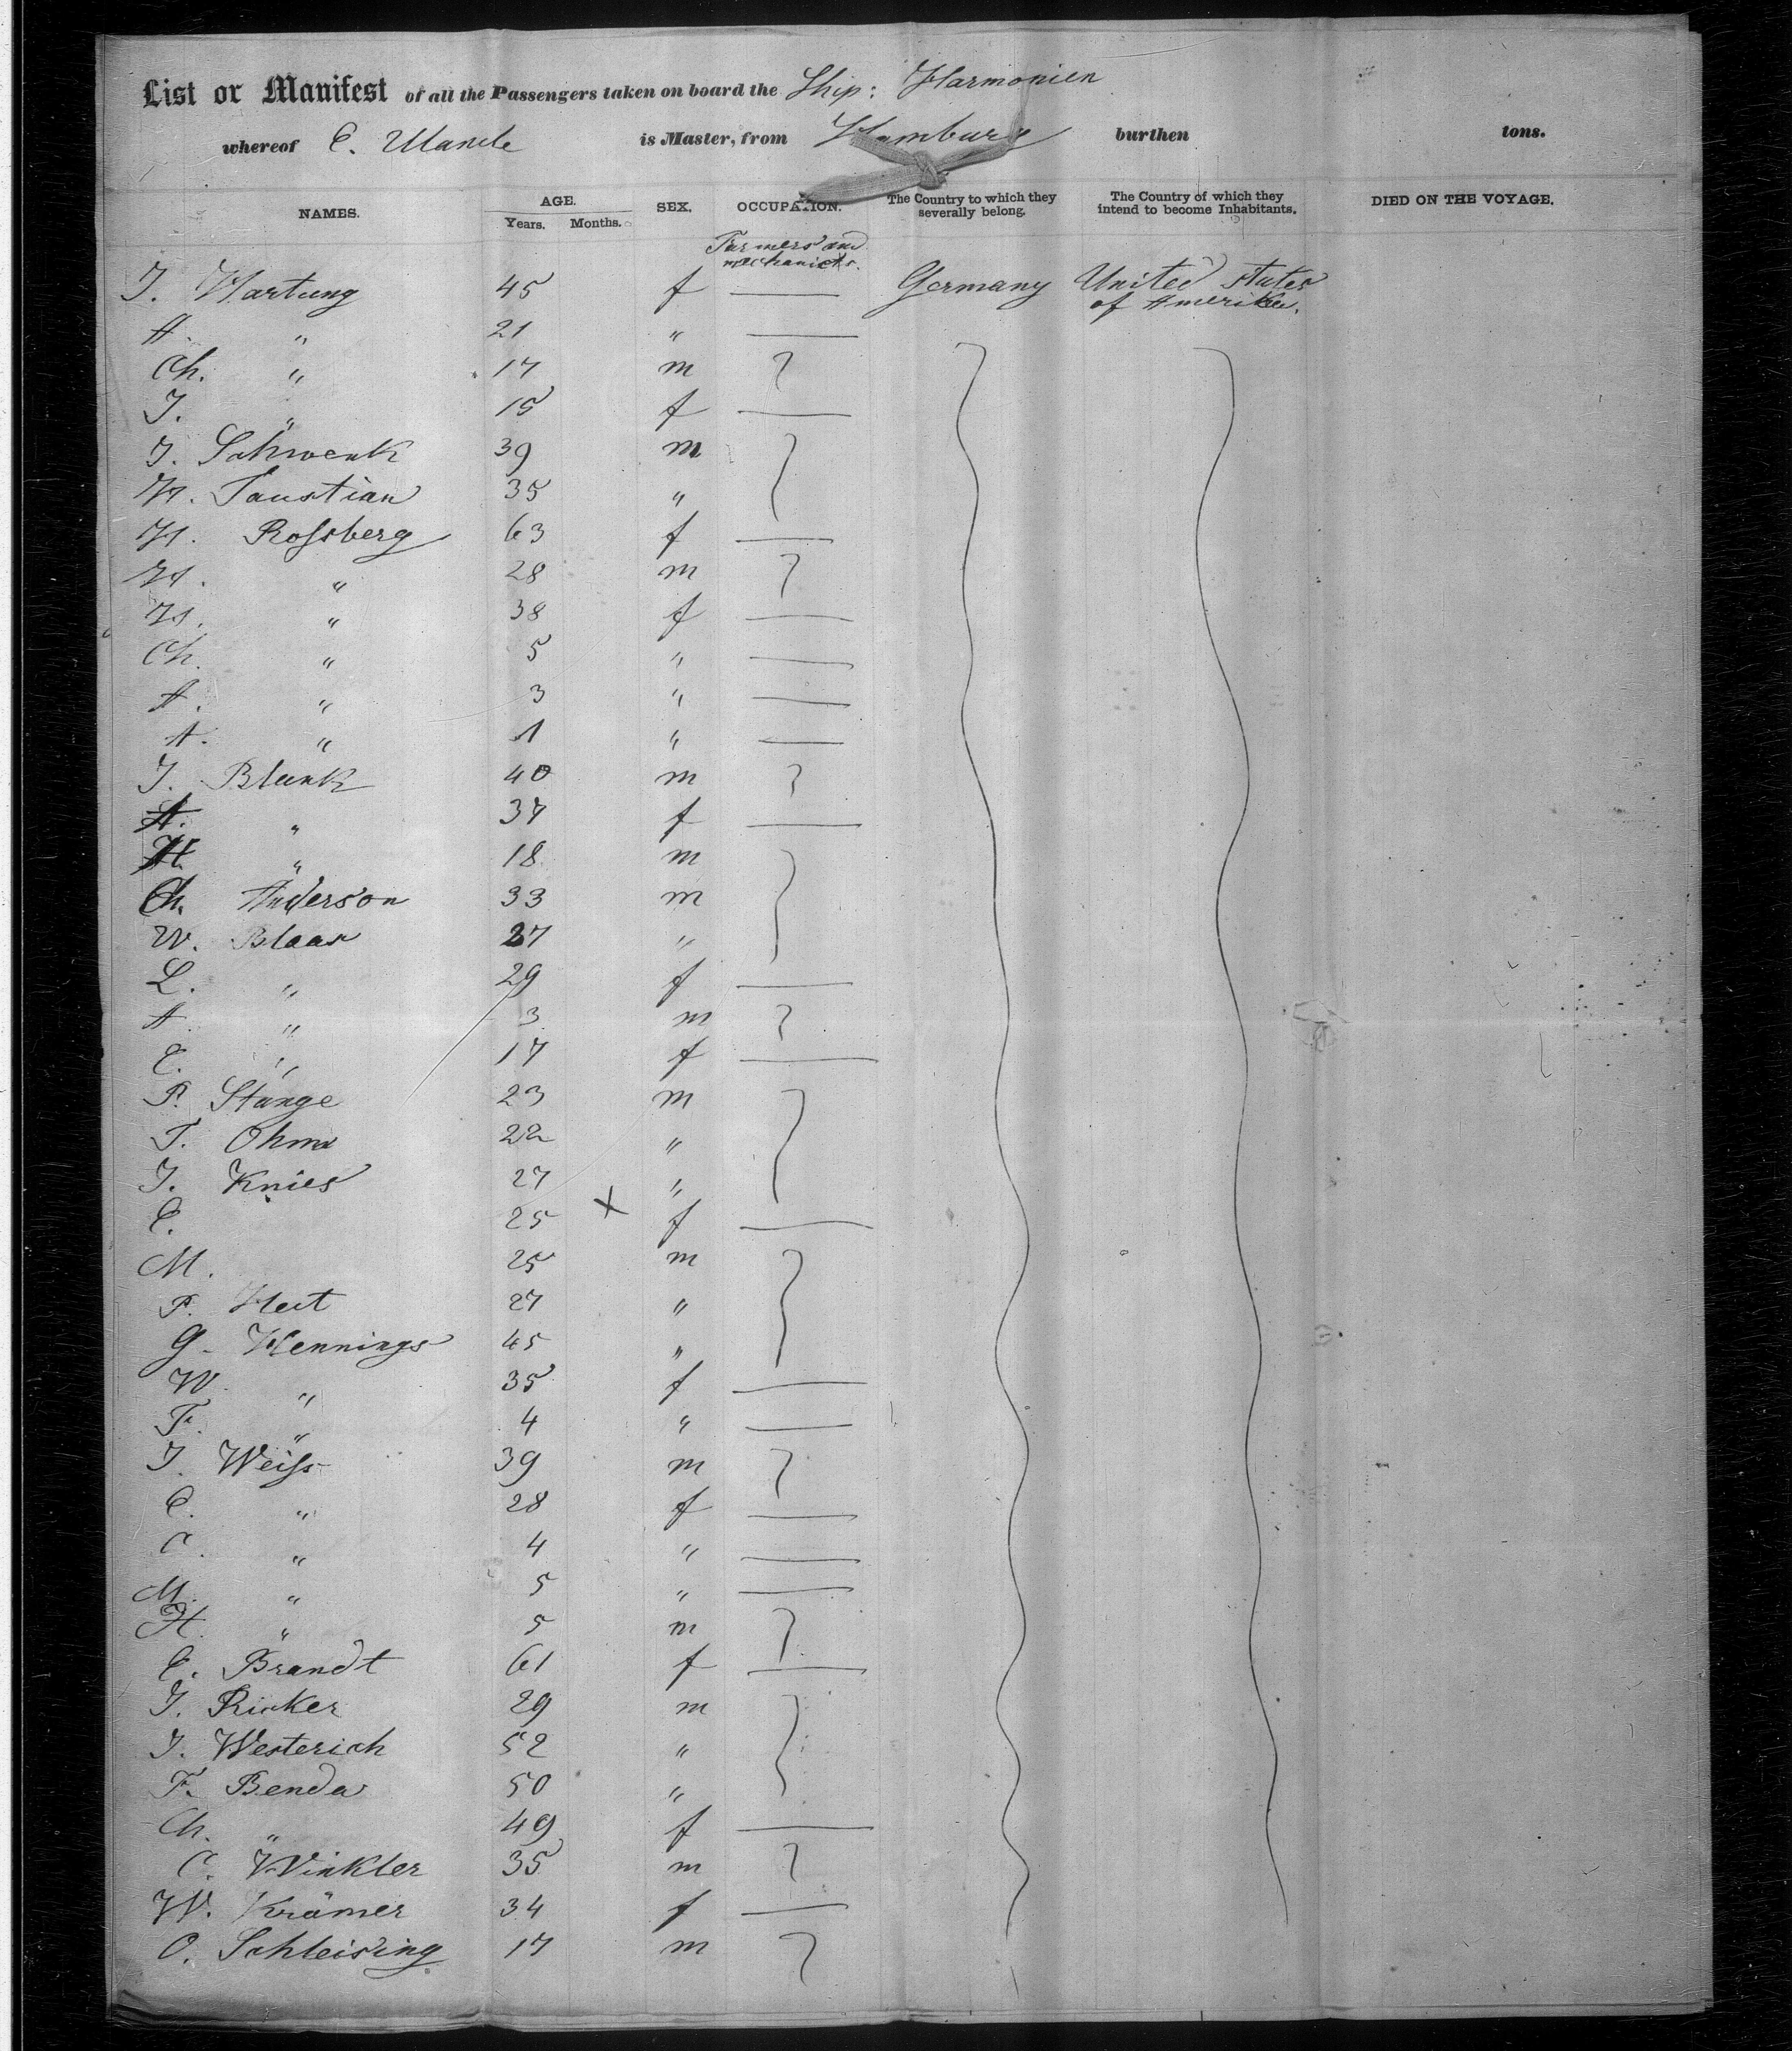 List or Manifest of all the Passengers taken on board the Ship: Harmonien
whereof C. is Master, from Hamburg burthen tons.
NAMES. AGE. SEX. OCCUPATION. The Country to which they severally belong. The Country of which they intend to become Inhabitants. DIED ON THE VOYAGE.
Years. Months.
Farmers and
mechanicks.
J. Hartung 45 f — Germany United States
of Amerika.
A. " 21 " —
Ch. " 17 m
J. " 15 f —
J. Schwenk 39 m
H. Faustian 35 "
H. Rofsberg 63 f —
H. " 28 m
H. " 38 f —
Ch. " 5 " —
A. " 3 " —
A. " 1 " —
J. Blank 40 m
A. " 37 f —
H. " 18 m
Ch. Anderson 33 m
W. Blaas 27 "
L. " 29 f —
A. " 3 m
C. " 17 f —
P. Stange 23 m
T. Ohm 22 "
J. Knies 27 "
C. 25 X f —
M. 25 m
P. Heit 27 "
G. Hennings 45 "
W. " 35 f —
F. " 4 " —
J. Weifs 39 m
C. " 28 f —
C. " 4 " —
M. " 5 " —
H. " 5 m
C. Brandt 61 f —
J. Ricker 29 m
J. Westerich 52 "
F. Benda 50 "
Ch. " 49 f —
C. Winkler 35 m
W. Krämer 34 f —
O. Schleising 17 m